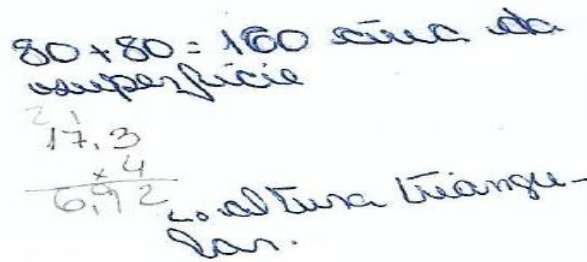 80+80=160 área da
superfície
2 1
17,3
x4
6,92
↳ altura triangu-
lar.